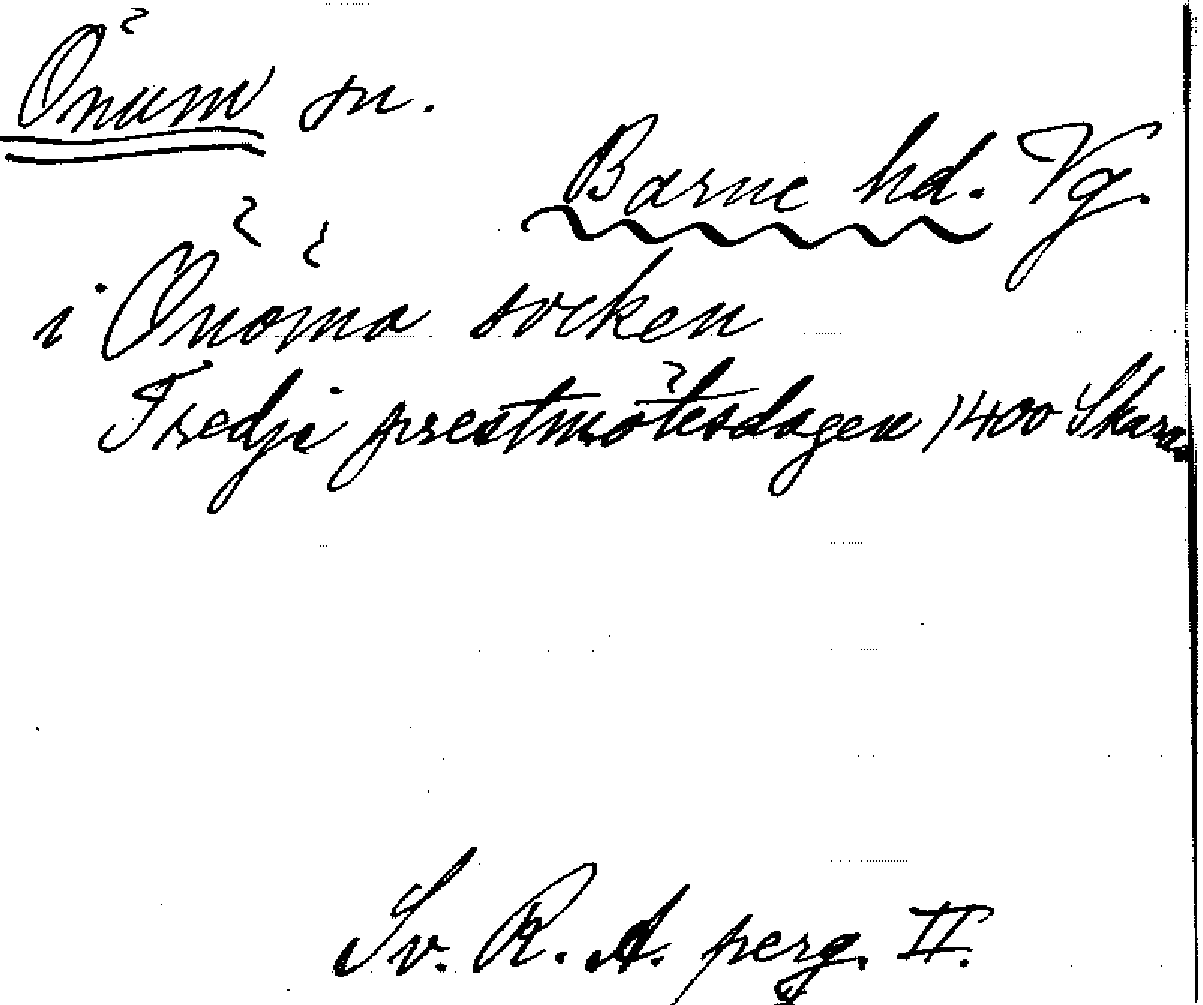 Önum sn.
Barne hd. Vg.
i Önöma socken
Tredje prestmötesdagen 1400 Skara
Sv. R. A. perg. II.